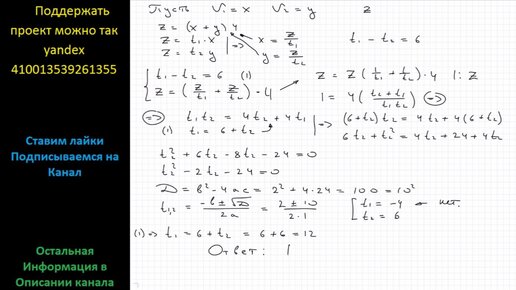 Поддержать
проект можно так
yandex
410013539261355
Ставим лайки
Подписываемся на
Канал
Остальная
Информация в
Описании канала
Пусть V₁ = x V₂ = y z
z = (x + y) 4
z = t₁ · x => x = z/t₁ t₁ - t₂ = 6
z = t₂ y y = z/t₂
{ t₁ - t₂ = 6 (1) z = z (1/t₁ + 1/t₂) · 4 |: z
z = (z/t₁ + z/t₂) · 4 1 = 4 ((t₂ + t₁)/(t₁ t₂)) <=>
<=> t₁ t₂ = 4t₂ + 4t₁ | => (6+t₂) t₂ = 4t₂ + 4(6+t₂)
(1) t₁ = 6 + t₂ 6t₂ + t₂² = 4t₂ + 24 + 4t₂
t₂² + 6t₂ - 8t₂ - 24 = 0
t₂² - 2t₂ - 24 = 0
D = b² - 4ac = 2² + 4·24 = 100 = 10²
t₁,₂ = (-b ± √D)/2a = (2 ± 10)/(2·1) [ t₁ = -4 ← нет.
t₂ = 6
(1) => t₁ = 6 + t₂ = 6 + 6 = 12
Ответ: 1